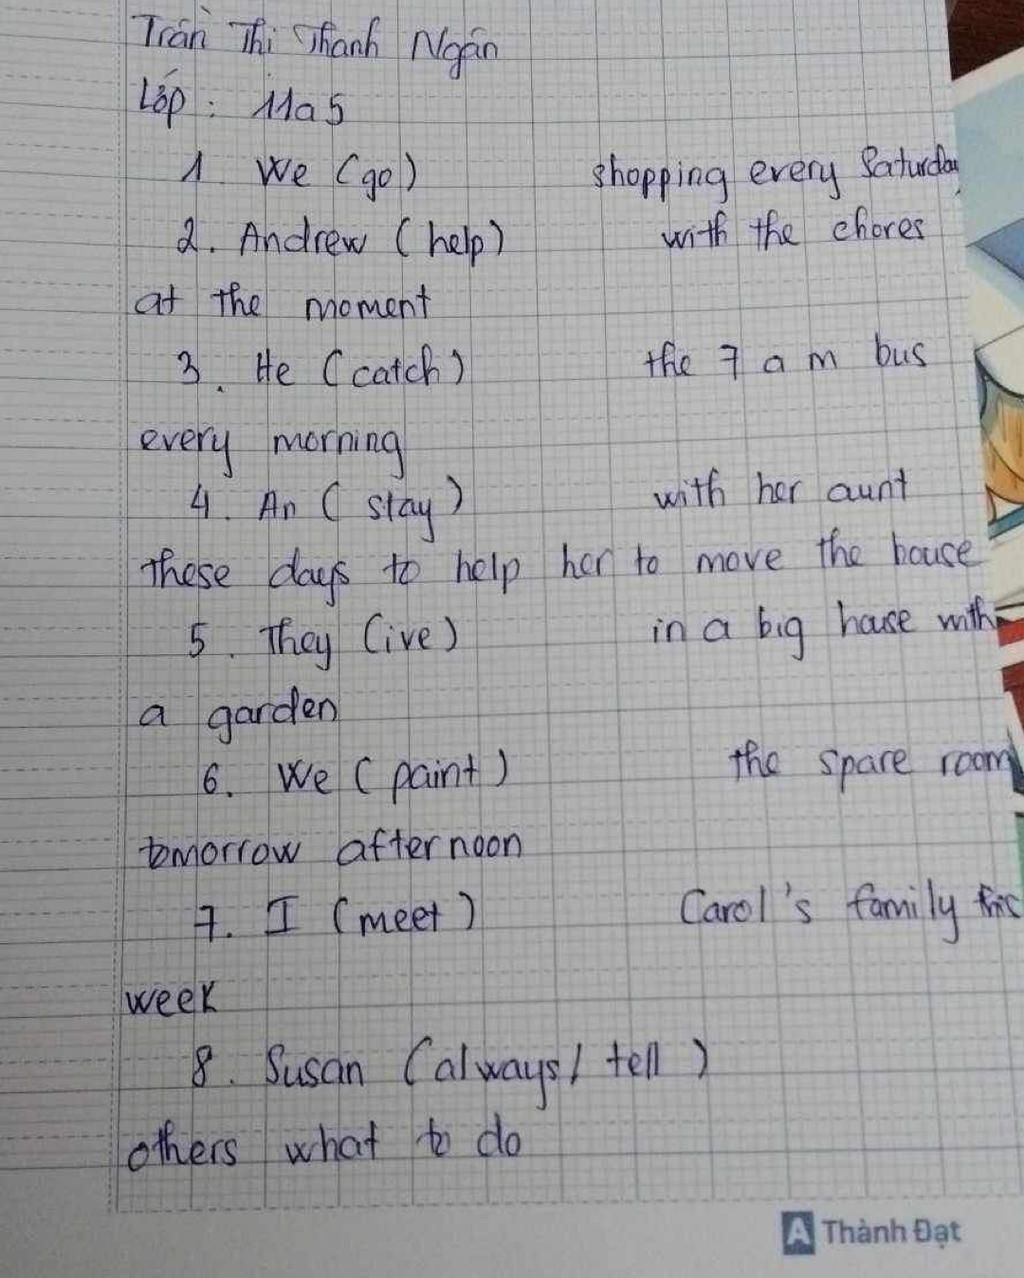 Trần Thị Thanh Ngân
Lớp : 11a5
1 We (go) shopping every Saturday
2. Andrew (help) with the chores
at the moment
3. He (catch) the 7 a m bus
every morning
4. An ( stay) with her aunt
these days to help her to move the house
5. They (ive) in a big house with
a garden
6. We ( paint) the spare room
tomorrow afternoon
7. I (meet) Carol's family this
week
8. Susan (always/ tell )
others what to do
A Thành Đạt